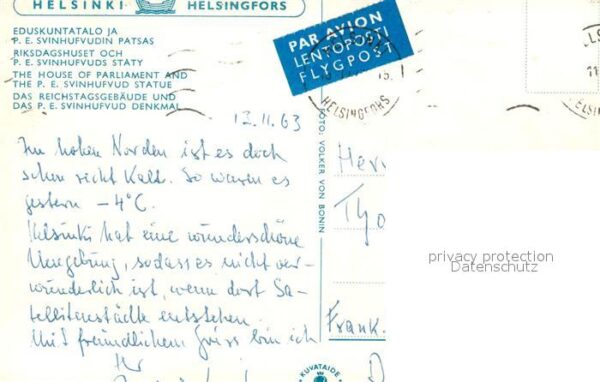 HELSINKI HELSINGFORS
EDUSKUNTATALO JA
P. E. SVINHUFVUDIN PATSAS
RIKSDAGSHUSET OCH
P. E. SVINHUFVUDS STATY
THE HOUSE OF PARLIAMENT AND
THE P. E. SVINHUFVUD STATUE
DAS REICHSTAGSGEBÄUDE UND
DAS P. E. SVINHUFVUD DENKMAL
PAR AVION
LENTOPOSTI
FLYGPOST
HELSINGFORS
12.11.63
Im hohen Norden ist es doch
schon recht Kalt. So waren es
gestern -4°C.
Helsinki hat eine wunderschöne
Umgebung, sodass es nicht ver-
wunderlich ist, wenn dort Sa-
tellitenstädte entstehen.
Mit freundlichem Gruss bin ich
Ihr
FOTO: VOLKER VON BONIN
Herr
Frank.
KUVATAIDE
privacy protection
Datenschutz